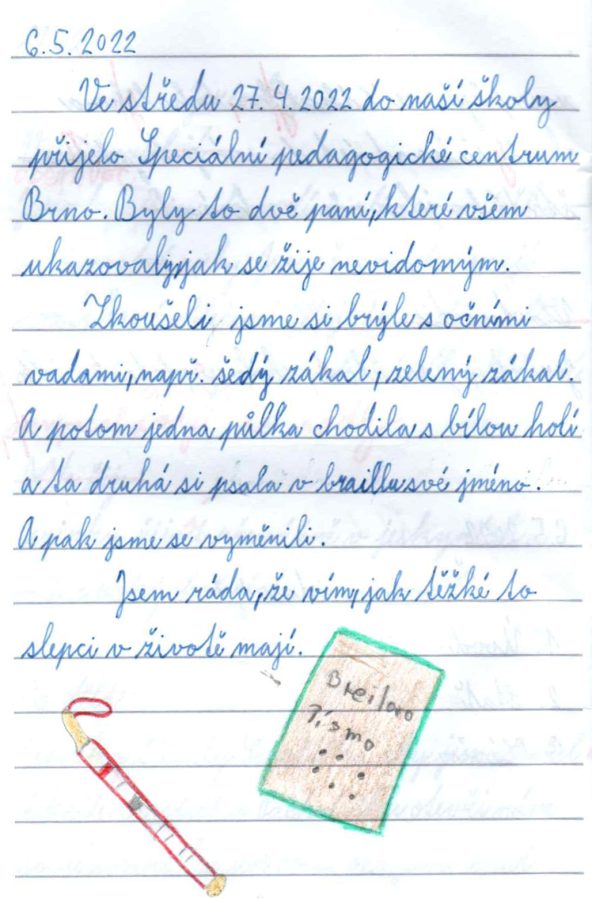 6.5.2022
Ve středu 27.4.2022 do naší školy
přijelo Speciální pedagogické centrum
Brno. Byly to dvě paní, které všem
ukazovaly, jak se žije nevidomým.
Zkoušeli jsme si brýle s očními
vadami, např. šedý zákal, zelený zákal.
A potom jedna půlka chodila s bílou holí
a ta druhá si psala v braillu své jméno.
A pak jsme se vyměnili.
Jsem ráda, že vím, jak těžké to
slepci v životě mají.
Breilovo
Písmo